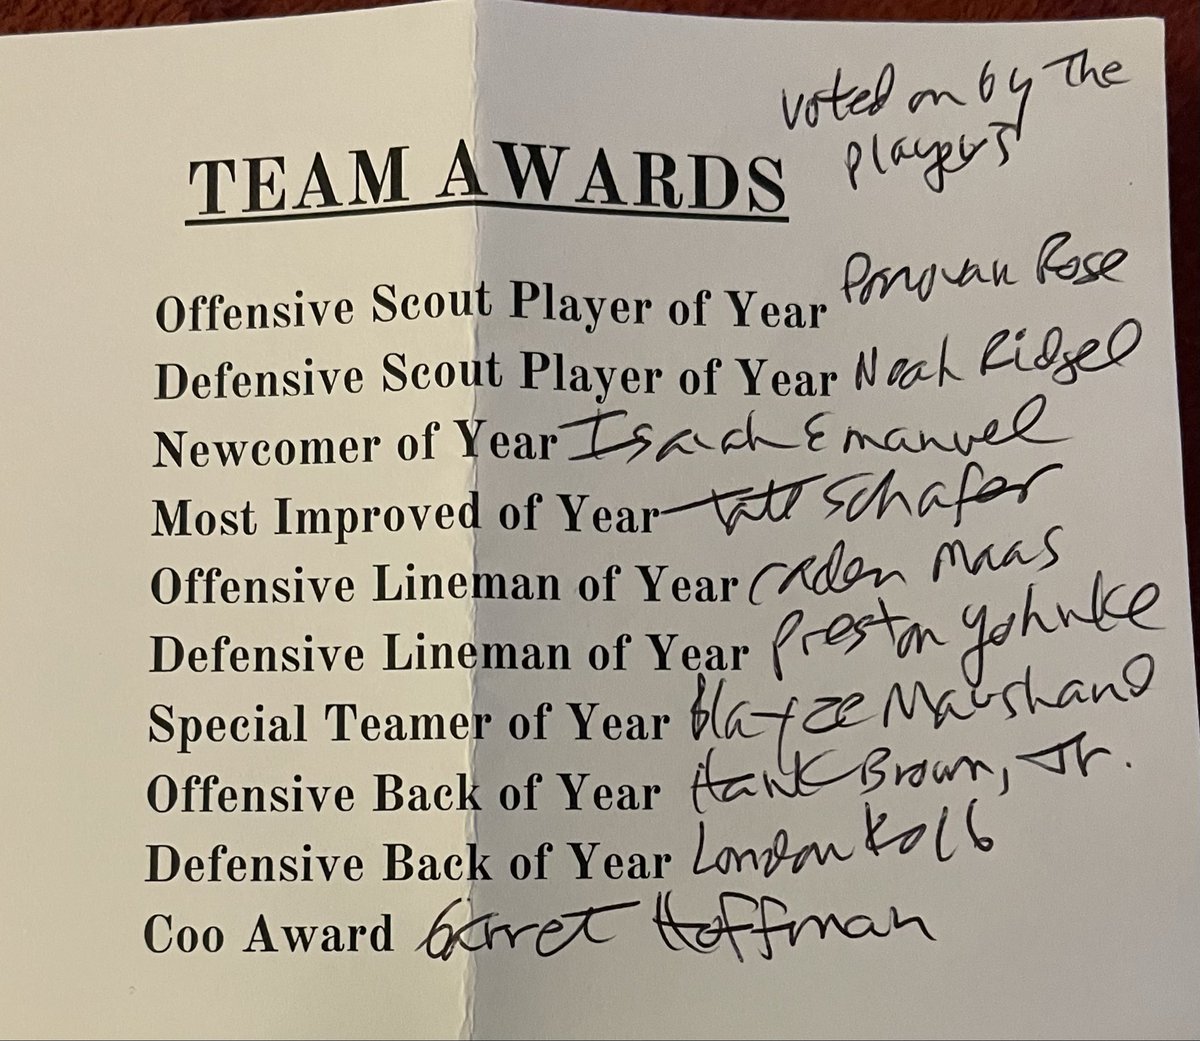 voted on by The
players
TEAM AWARDS
Offensive Scout Player of Year Donovan Rose
Defensive Scout Player of Year Noah Ridgel
Newcomer of Year Isaiah Emanuel
Most Improved of Year Tate Schafer
Offensive Lineman of Year Caden Maas
Defensive Lineman of Year Preston Yohnke
Special Teamer of Year Blayze
Offensive Back of Year Hank Brown, Jr.
Defensive Back of Year London Kolb
Coo Award Garret Hoffman